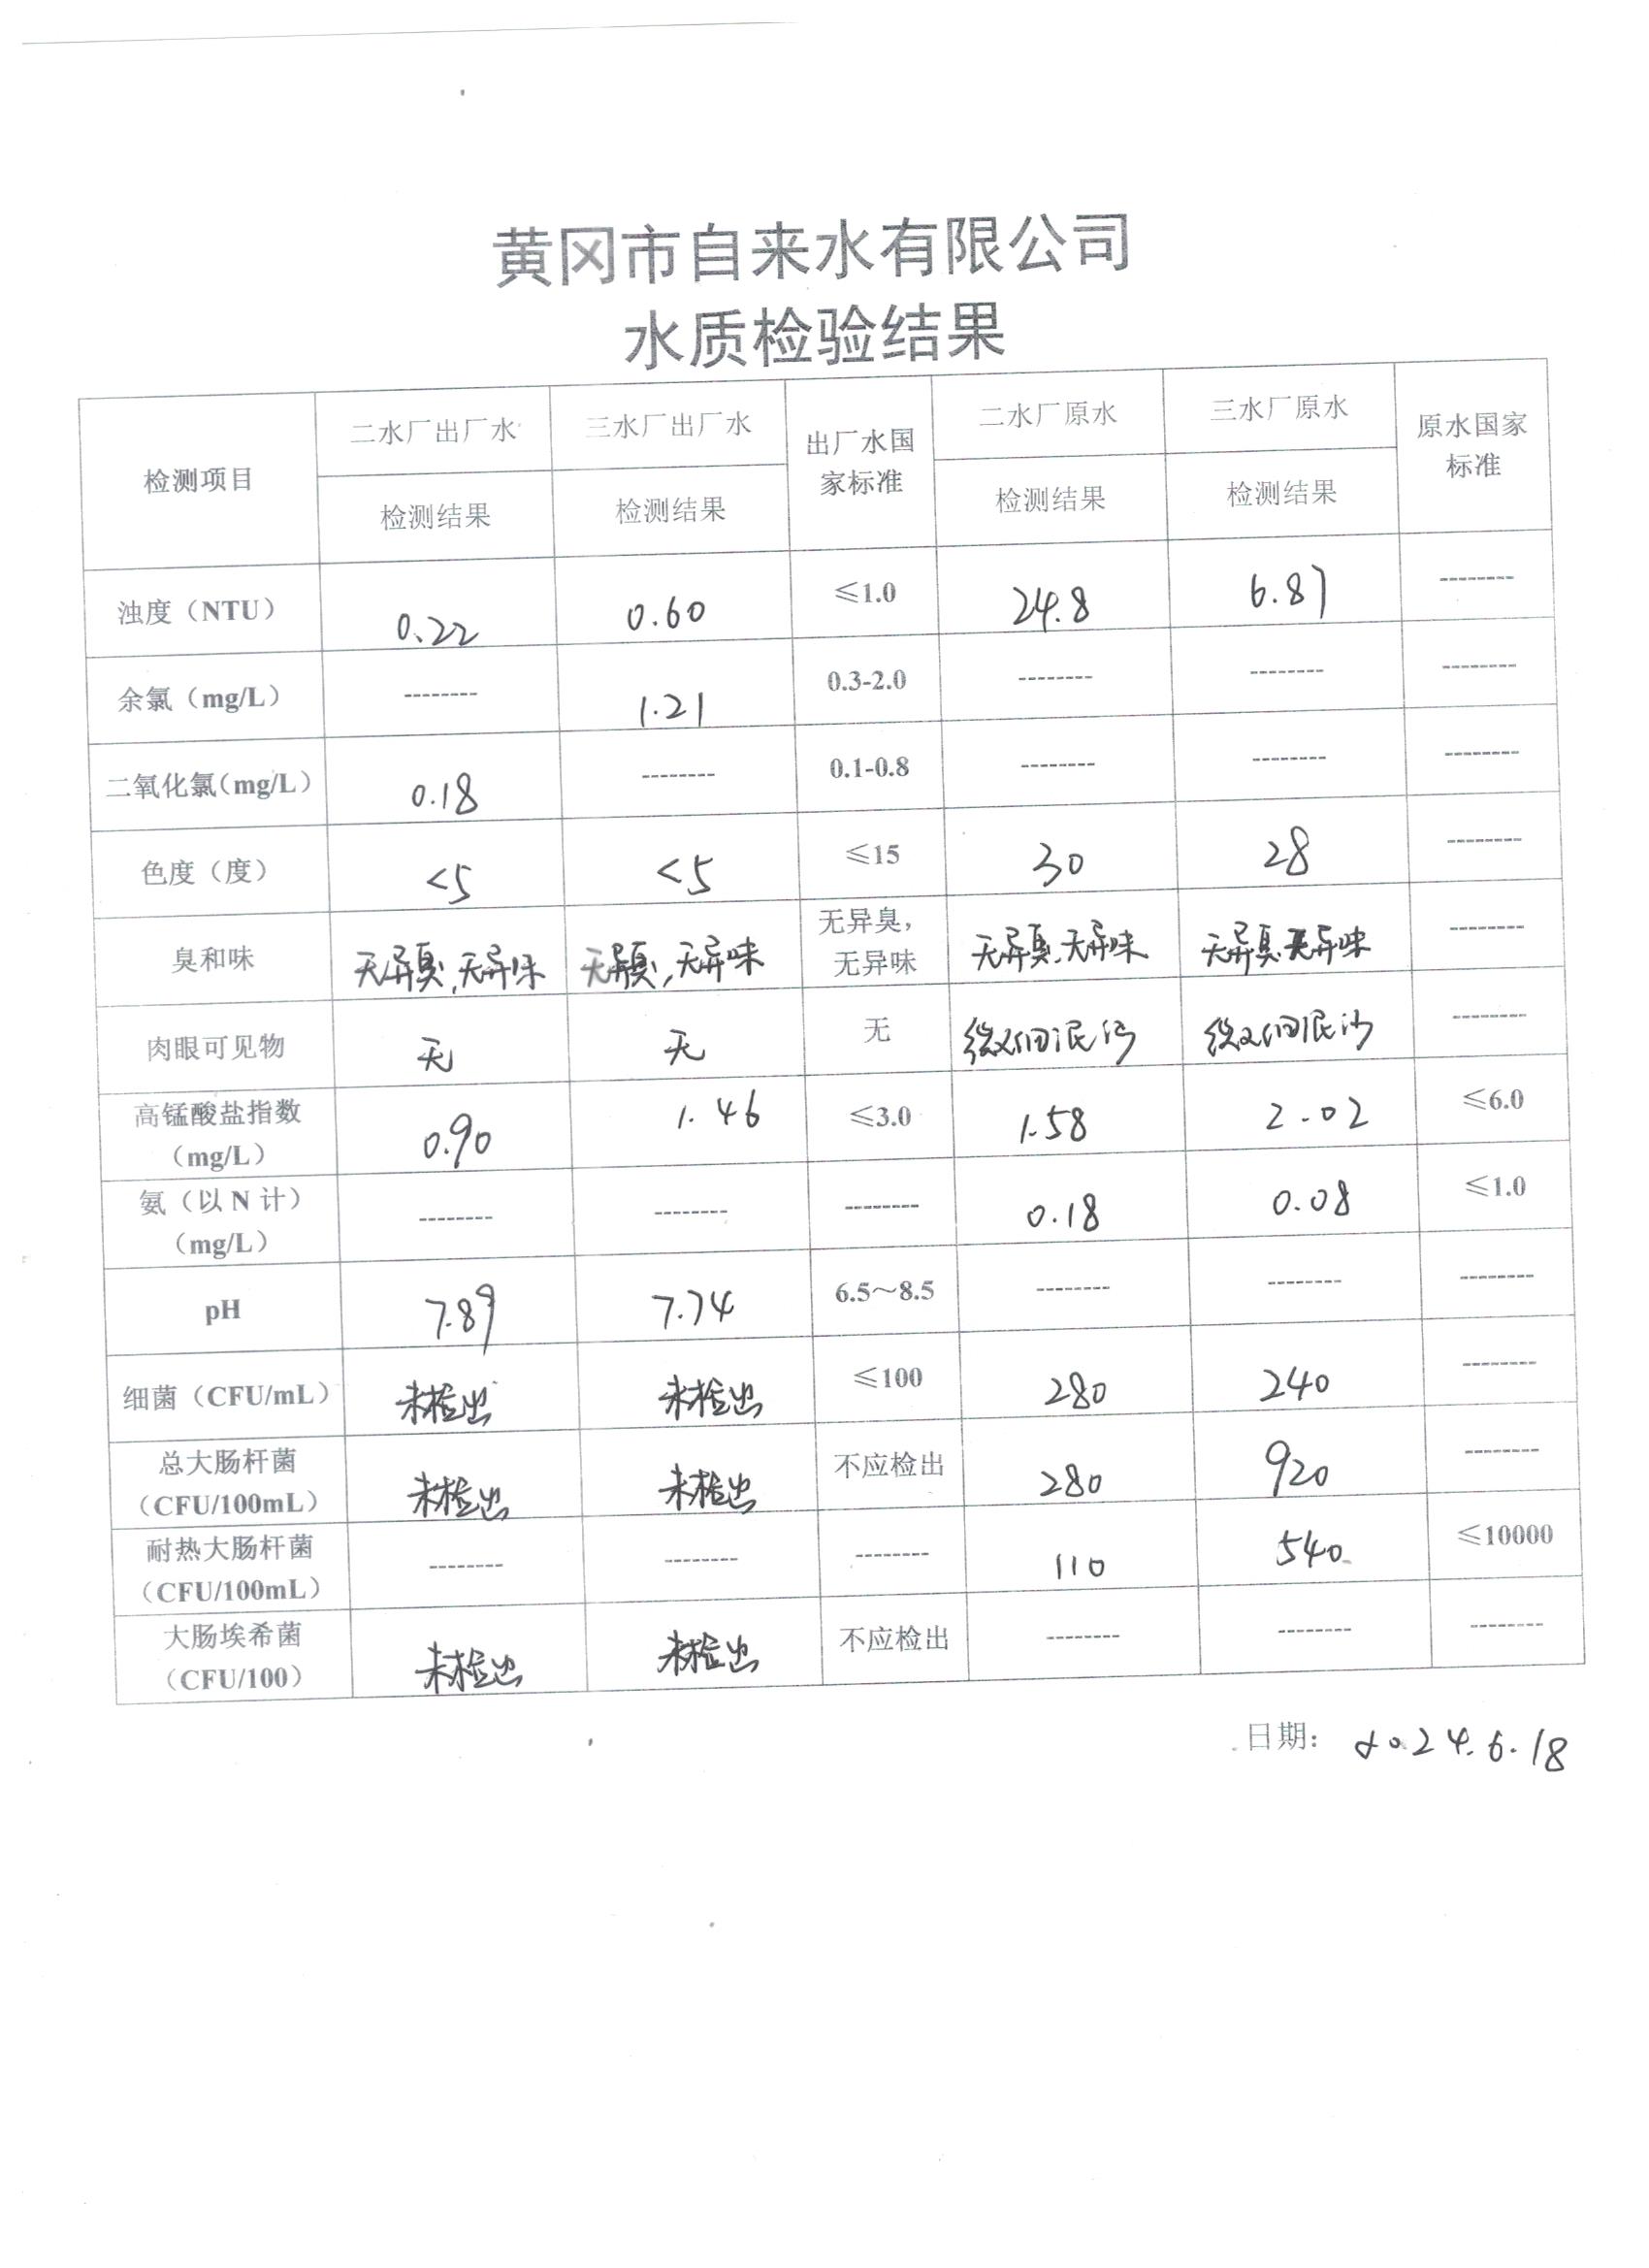 黄冈市自来水有限公司
水质检验结果
检测项目 二水厂出厂水 三水厂出厂水 出厂水国家标准 二水厂原水 三水厂原水 原水国家标准
检测结果 检测结果 检测结果 检测结果
浊度（NTU） 0.22 0.60 ≤1.0 24.8 6.87 --------
余氯（mg/L） -------- 1.21 0.3-2.0 -------- -------- --------
二氧化氯（mg/L） 0.18 -------- 0.1-0.8 -------- -------- --------
色度（度） <5 <5 ≤15 30 28 --------
臭和味 无异臭,无异味 无异臭,无异味 无异臭，无异味 无异臭.无异味 无异臭.无异味 --------
肉眼可见物 无 无 无 泥沙 泥沙 --------
高锰酸盐指数（mg/L） 0.90 1.46 ≤3.0 1.58 2.02 ≤6.0
氨（以 N 计）（mg/L） -------- -------- -------- 0.18 0.08 ≤1.0
pH 7.89 7.74 6.5～8.5 -------- -------- --------
细菌（CFU/mL） 未检出 未检出 ≤100 280 240 --------
总大肠杆菌（CFU/100mL） 未检出 未检出 不应检出 280 920 --------
耐热大肠杆菌（CFU/100mL） -------- -------- -------- 110 540 ≤10000
大肠埃希菌（CFU/100） 未检出 未检出 不应检出 -------- -------- --------
日期： 2024.6.18